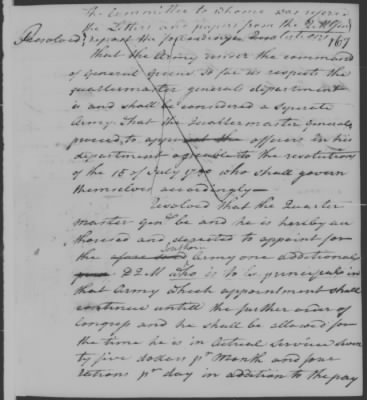 The Committee to whome was referred
the Letters and papers from the Q. M. Genl
Resolved, report the following Resolutions 167
that the Army under the command
of General Greene so far as respects the
quartermaster generals department
is and shall be considered a Seperate
Army That the Quartermaster General
proceed to appoint the officers in his
department agreeable to the resolution
of the 15 of July 1780 who shall govern
themselves accordingly—
Resolved that the Quarter
master Genl be and he is hereby au
thorised and directed to appoint for
the Southern Army one additional
D Q M who is to be principal in
that Army which appointment shall
continue untill the further order of
Congress and he shall be allowed for
the time he is in actual Service Seven
ty five dollars pr Month and four
rations pr day in addition to the pay